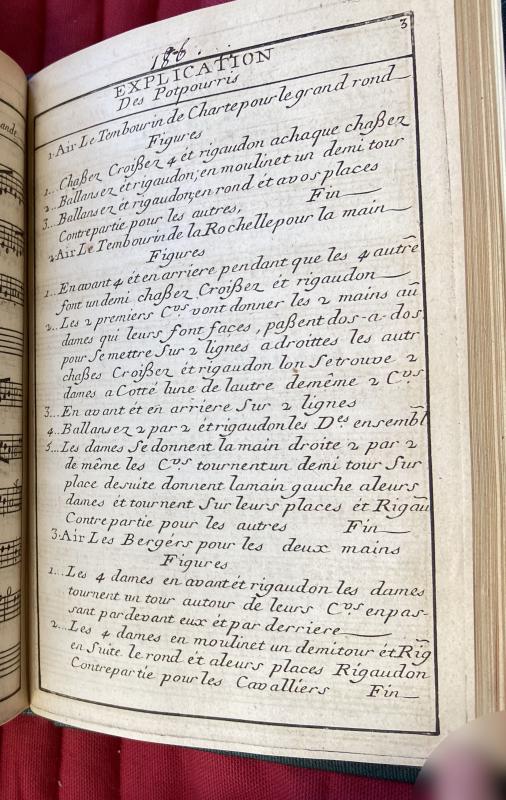 ande
186.
3
EXPLICATION
Des Potpourris
1. Air Le Tembourin de Charte pour le grand rond
Figures
1... Chaßez Croißez 4 ét rigaudon achaque chaßez
2.. Ballansez ét rigaudon; en moulinet un demi tour
3... Ballansez ét rigaudon; en rond ét avos places
Contrepartie pour les autres, Fin
2. Air Le Tembourin de la Rochelle pour la main
Figures
1... En avant 4 ét en arriere pendant que les 4 autre
font un demi chaßez Croißez ét rigaudon
2.. Les 2 premiers Cvs vont donner les 2 mains aū
dames qui leurs font faces, paßent dos-a-dos,
pour se mettre Sur 2 lignes a droittes les autr
chaßes Croißez ét rigaudon lon se trouve 2
dames a Cotté lune de lautre de même 2 Cvs
3... En avant ét en arriere Sur 2 lignes
4.. Ballansez 2 par 2 ét rigaudon les Des ensembl
5... Les dames Se donnent la main droite 2 par 2
de même les Cvs tournent un demi tour Sur
place de suite donnent la main gauche a leurs
dames ét tournent Sur leurs places ét Rigaū
Contre partie pour les autres Fin
3. Air Les Bergérs pour les deux mains
Figures
1... Les 4 dames en avant ét rigaudon les dames
tournent un tour autour de leurs Cvs en pas-
sant par devant eux ét par derriere
2... Les 4 dames en moulinet un demi tour ét Rig̅
en Suite le rond ét a leurs places Rigaudon
Contrepartie pour les Cavalliers Fin